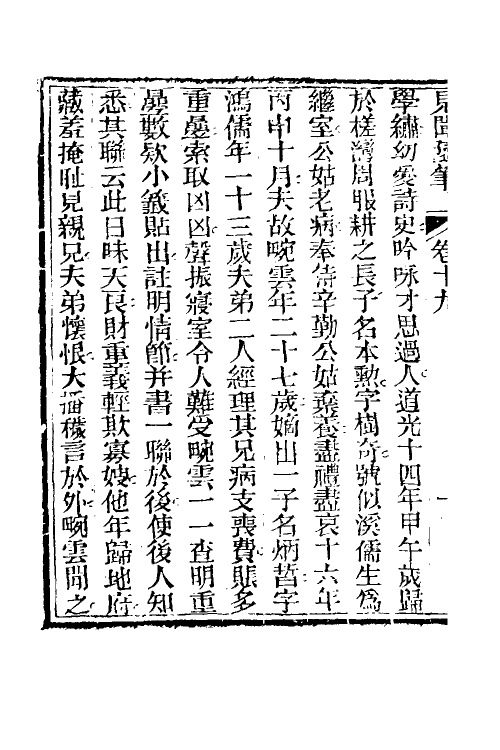 見聞瑣筆 卷十九 一
學繡幼愛詩史吟咏才思過人道光十四年甲午歲歸
於槎灣周服耕之長子名本勲字樹奇號似溪儒生爲
繼室公姑老病奉侍辛勤公姑棄養盡禮盡哀十六年
丙申十月夫故畹雲年二十七歲嫡出一子名炳晢字
鴻儒年一十三歲夫弟二人經理其兄病支喪費賬多
重曡索取凶凶聲振寢室令人難受畹雲一一查明重
曡數欵小箋貼出註明情節并書一聯於後使後人知
悉其聯云此日昧天良財重義輕欺寡嫂他年歸地府
藏羞掩耻見親兄夫弟懷恨大播穢言於外畹雲聞之